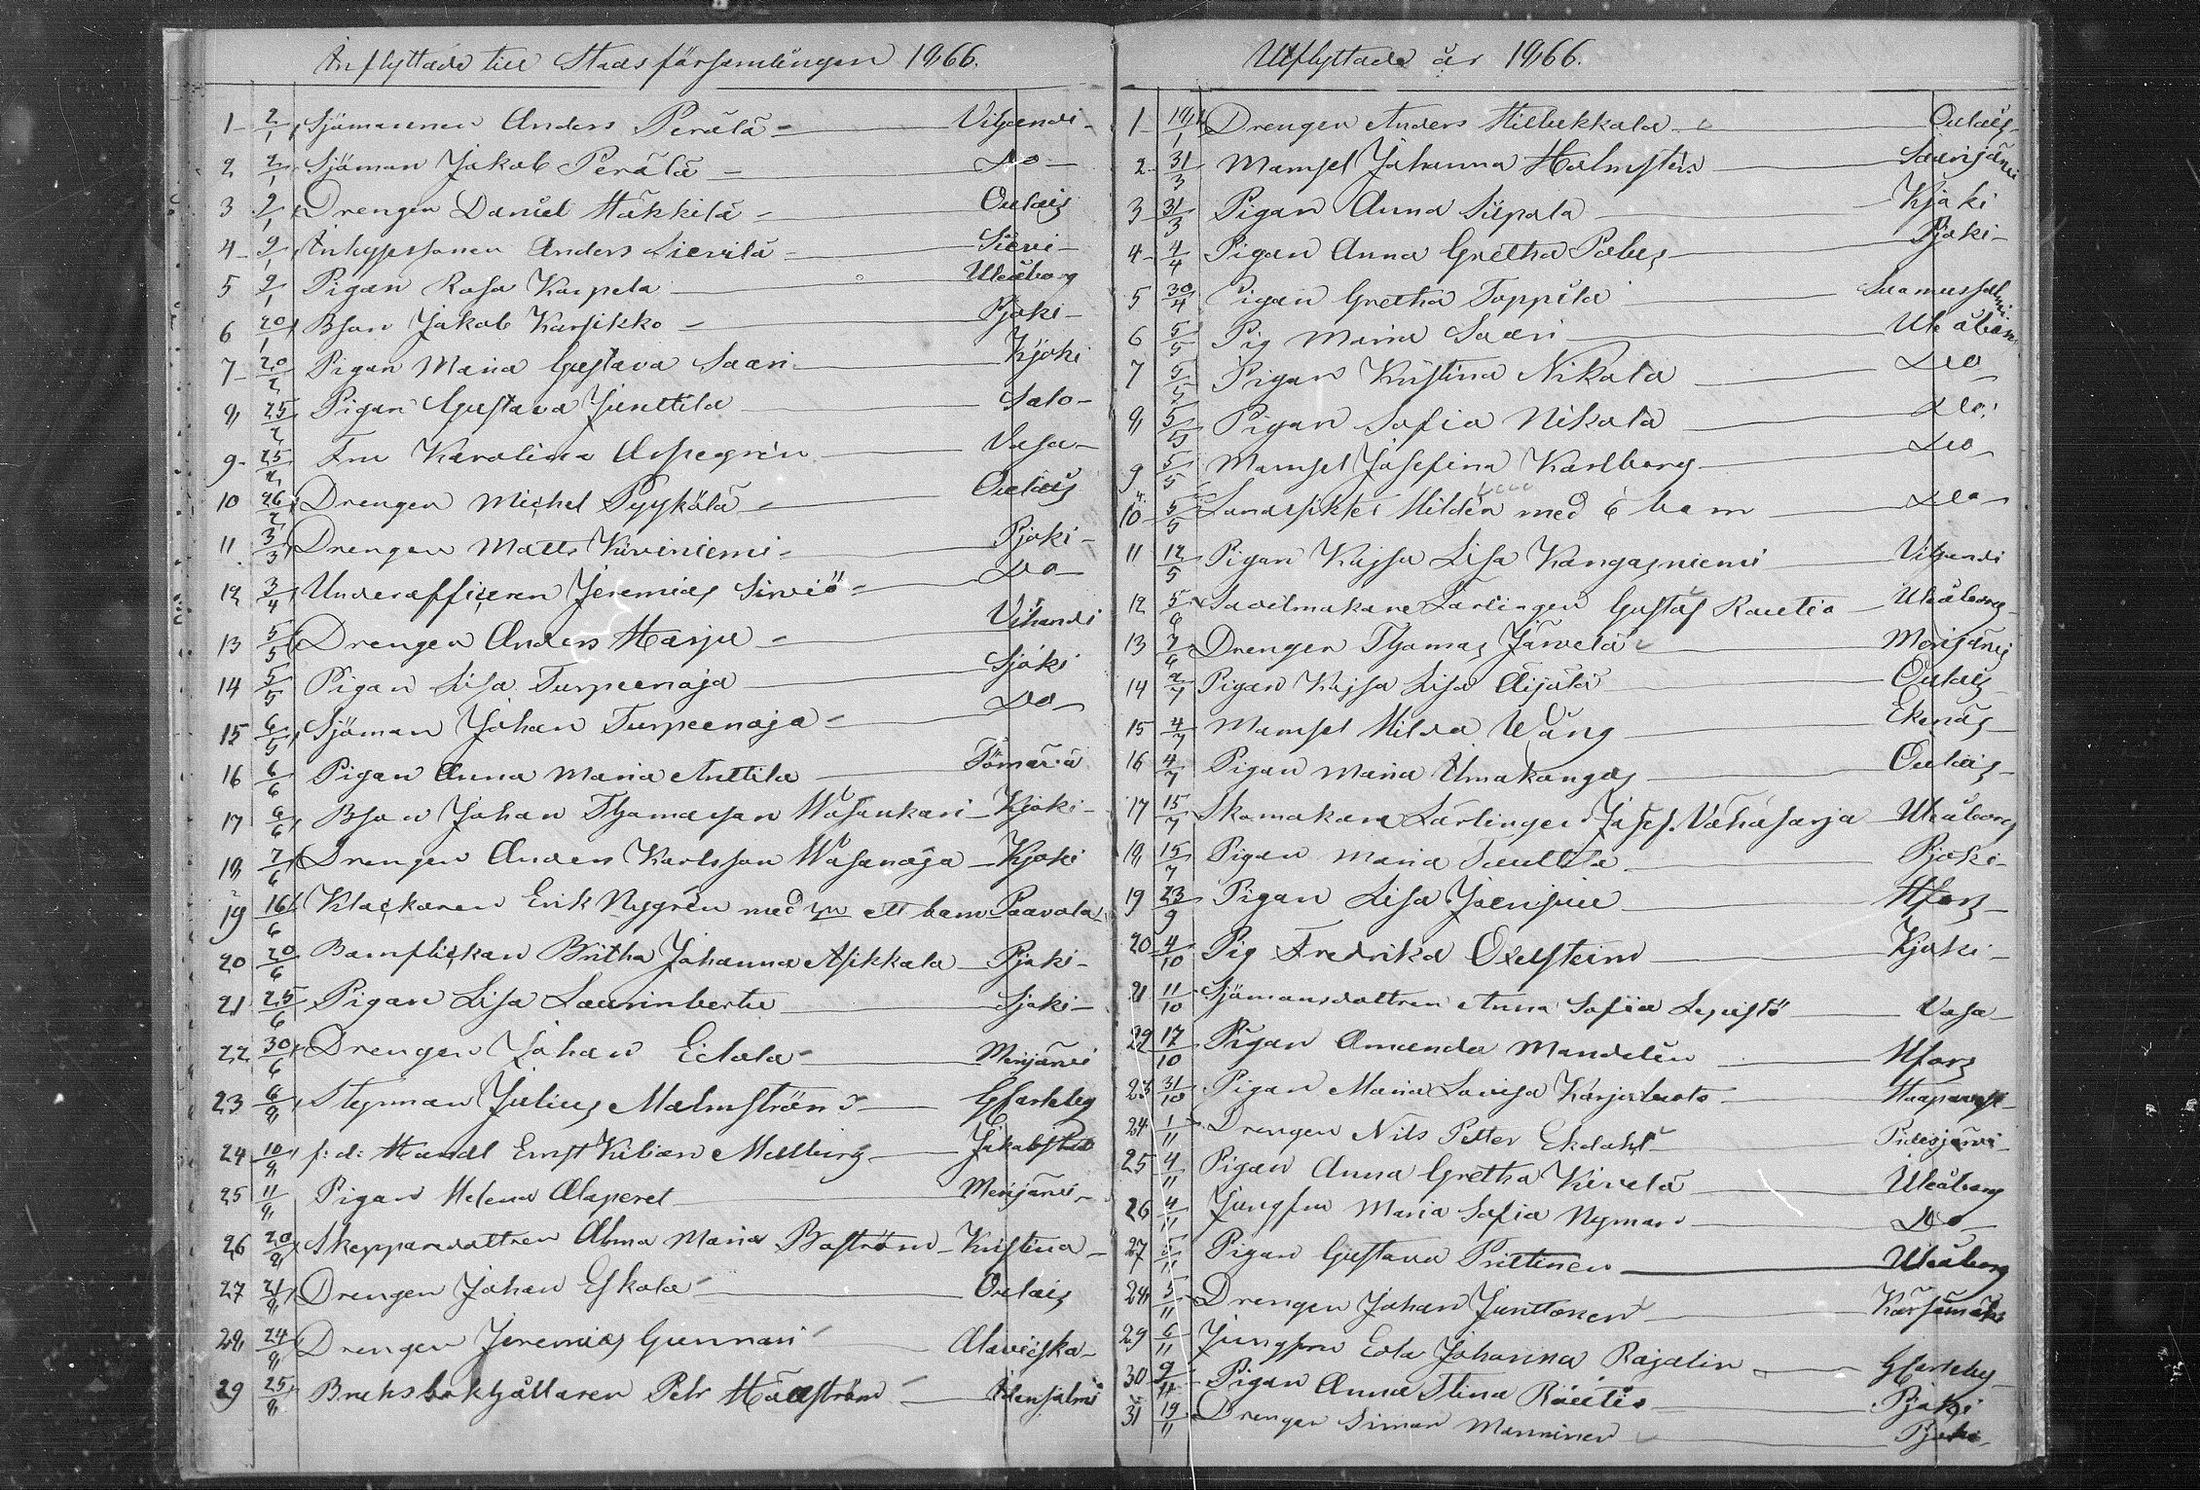 Inflyttade till Stadsförsamlingen 1866.
1 2/1 Sjömannen Anders Perälä Vihandi
2 2/1 Sjöman Jakob Perälä Do
3 9/1 Drengen Daniel Häkkilä Oulais
4 9/1 Inhyssonen Anders Sievilä Sievi
5 9/1 Pigan Rosa Karpela Uleåborg
6 20/1 Bson Jakob Karsikko Pjoki
7 20/2 Pigan Maria Gustava Saari Kjoki
8 25/2 Pigan Gustava Junttila Salo
9 25/2 Fru Karolina Aspegrén Vasa
10 26/2 Drengen Michel Pyykölä Oulais
11 3/3 Drengen Matts Kiviniemi Pjoki
12 3/4 Underofficeren Jeremias Sirviö Do
13 5/5 Drengen Anders Harju Vihandi
14 5/5 Pigan Lisa Turpeenoja Sjoki
15 6/5 Sjöman Johan Turpeenoja Do
16 6/6 Pigan Anna Maria Anttila
17 6/6 Bson Johan Thomasson Wasankari Kjoki
18 7/6 Drengen Anders Karlsson Wasanoja Kjoki
19 16/6 Klockaren Erik Nygrén med ett barn Paavola
20 20/6 Barnflickan Britha Johanna Asikkala Pjoki
21 25/6 Pigan Lisa Sjoki
22 30/6 Drengen Johan Eskola Merijärvi
23 6/8 Styrman Julius Malmström Gkarleby
24 10/8 f: d: Handl Ernst Kilian Mellberg Jakobstad
25 11/8 Pigan Helena Alaperet Merijärvi
26 20/8 Skepparedottren Alma Maria Boström Kristina
27 21/8 Drengen Johan Eskola Oulais
28 24/8 Drengen Jeremias Gunnari Alavieska
29 25/8 Bruksbokhållaren Petr Hällström Idensalmi
Utflyttade år 1866.
1 18/1 Drengen Anders Hillukkala Oulais
2 31/3 Mamsel Johanna Holmstén Saarijärvi
3 31/3 Pigan Anna Siipola Kjoki
4 4/4 Pigan Anna Gretha Pjoki
5 30/4 Pigan Gretha Toppila Suomussalmi
6 5/5 Pig Maria Saari Uleåborg
7 5/5 Pigan Kristina Nikola Do
8 5/5 Pigan Sofia Nikola Do
9 5/5 Mamsel Josefina Karlborg Do
10 5/5 Hildén med 6 barn Do
11 12/5 Pigan Kajsa Lisa Kangasniemi Vihandi
12 5/6 Lärlingen Gustaf Rautio Uleåborg
13 7/6 Drengen Thomas Järvelä Merijärvi
14 2/7 Pigan Kajsa Lisa Äijälä Oulais
15 4/7 Mamsel Hilda Wång Ekenäs
16 4/7 Pigan Maria Ilmakangas Oulais
17 15/7 Skomakare Lärlingen Josef Vähäsarja Uleåborg
18 15/7 Pigan Maria Pjoki
19 23/9 Pigan Lisa Hfors
20 4/10 Pig Fredrika Oxelstein Kjoki
21 11/10 Sjömansdottren Anna Sofia Lepistö Vasa
22 17/10 Pigan Amanda Mandelin Hfors
23 31/10 Pigan Maria Lovisa Haapavesi
24 1/11 Drengen Nils Petter Ekdahl Pidisjärvi
25 4/11 Pigan Anna Gretha Kivelä Uleåborg
26 4/11 Jungfru Maria Sofia Nyman Do
27 5/11 Pigan Gustava Prittinen Uleåborg
28 5/11 Drengen Johan Junttonen Kärsämäki
29 6/11 Jungfru Eda Johanna Rajalin Gkarleby
30 9/11 Pigan Anna Stina Rautio Pjoki
31 19/11 Drengen Simon Manninen Pjoki